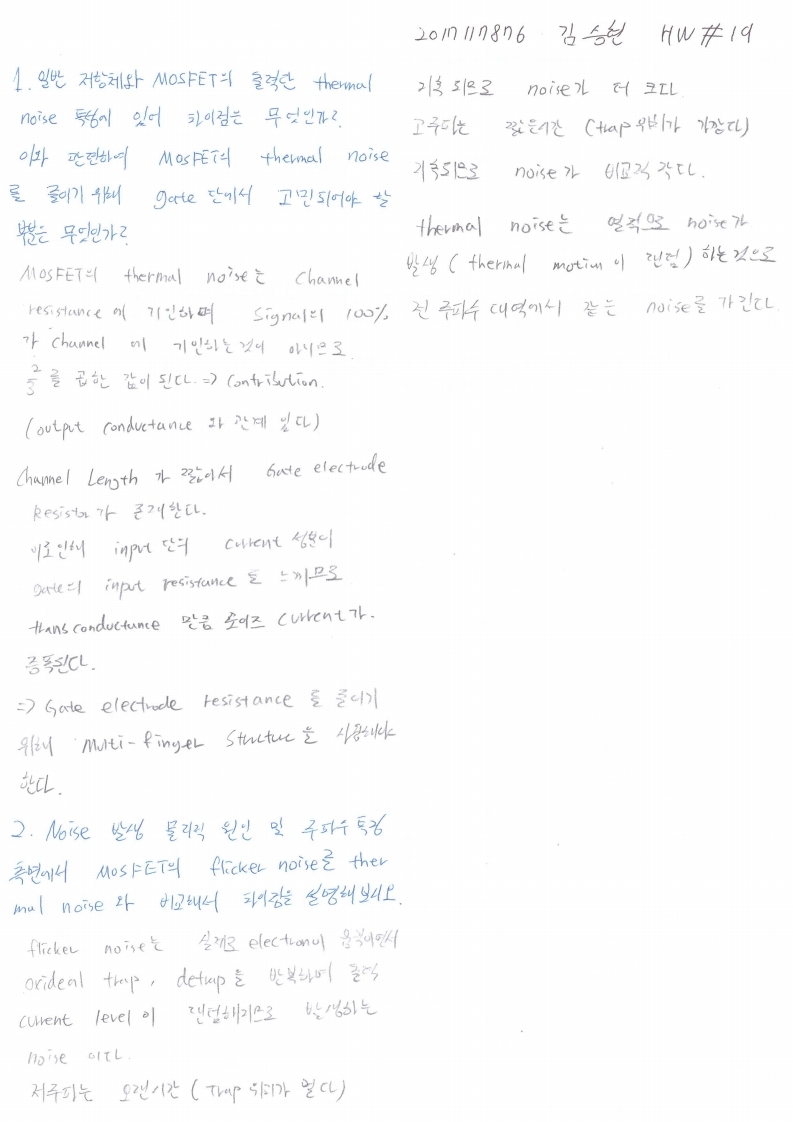 2017117876 김승현 HW#19
1. 일반 저항체와 MOSFET의 출력단 thermal
noise 특성에 있어 차이점은 무엇인가?
이와 관련하여 MOSFET의 thermal noise
를 줄이기 위해 gate 단에서 고민되어야 할
부분은 무엇인가?
MOSFET의 thermal noise는 Channel
resistance에 기인하며 Signal의 100%
가 channel 에 기인하는것이 아니므로
2/3 를 곱한 값이 된다. => Contribution.
(output conductance 와 관계 있다)
Channel Length 가 짧아서 Gate electrode
Resistor가 존재한다.
이로인해 input 단의 current 성분이
gate의 input resistance를 느끼므로
transconductance 만큼 노이즈 current가.
증폭된다.
=> Gate electrode resistance를 줄이기
위해 Multi-finger structure을 사용해야
한다.
2. Noise 발생 물리적 원인 및 주파수 특징
측면에서 MOSFET의 flicker noise를 ther
mal noise와 비교해서 차이점을 설명해보시오.
flicker noise는 실제로 electron이 움직이면서
oxide에 trap, detrap을 반복하여 출력
current level이 랜덤해지므로 발생하는
noise 이다.
저주파는 오랜시간 (Trap 위치가 멀다)
기록되므로 noise가 더 크다.
고주파는 짧은시간 (trap위치가 가깝다)
기록되므로 noise가 비교적 작다.
thermal noise는 열적으로 noise가
발생 (thermal motion이 랜덤) 하는것으로
전 주파수 대역에서 같은 noise를 가진다.